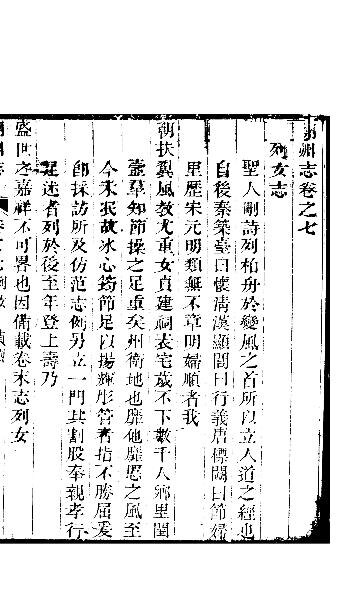 州志卷之七
列女志
聖人刪詩列柏舟於變風之首所以立人道之經也
自後秦築臺曰懷淸漢顯閭曰行義唐標闕曰節婦
里歷宋元明類無不章明婦順者我
朝扶翼風敎尤重女貞建祠表宅歲不下數千人鄉里閨
壼羣知節操之足重矣州衛地也靡他靡慝之風至
今未泯故冰心筠節足以揚耀彤管者指不勝屈爰
卽採訪所及仿范志例另立一門其割股奉親孝行
足述者列於後至年登上壽乃
盛世之嘉祥不可畧也因備載卷末志列女